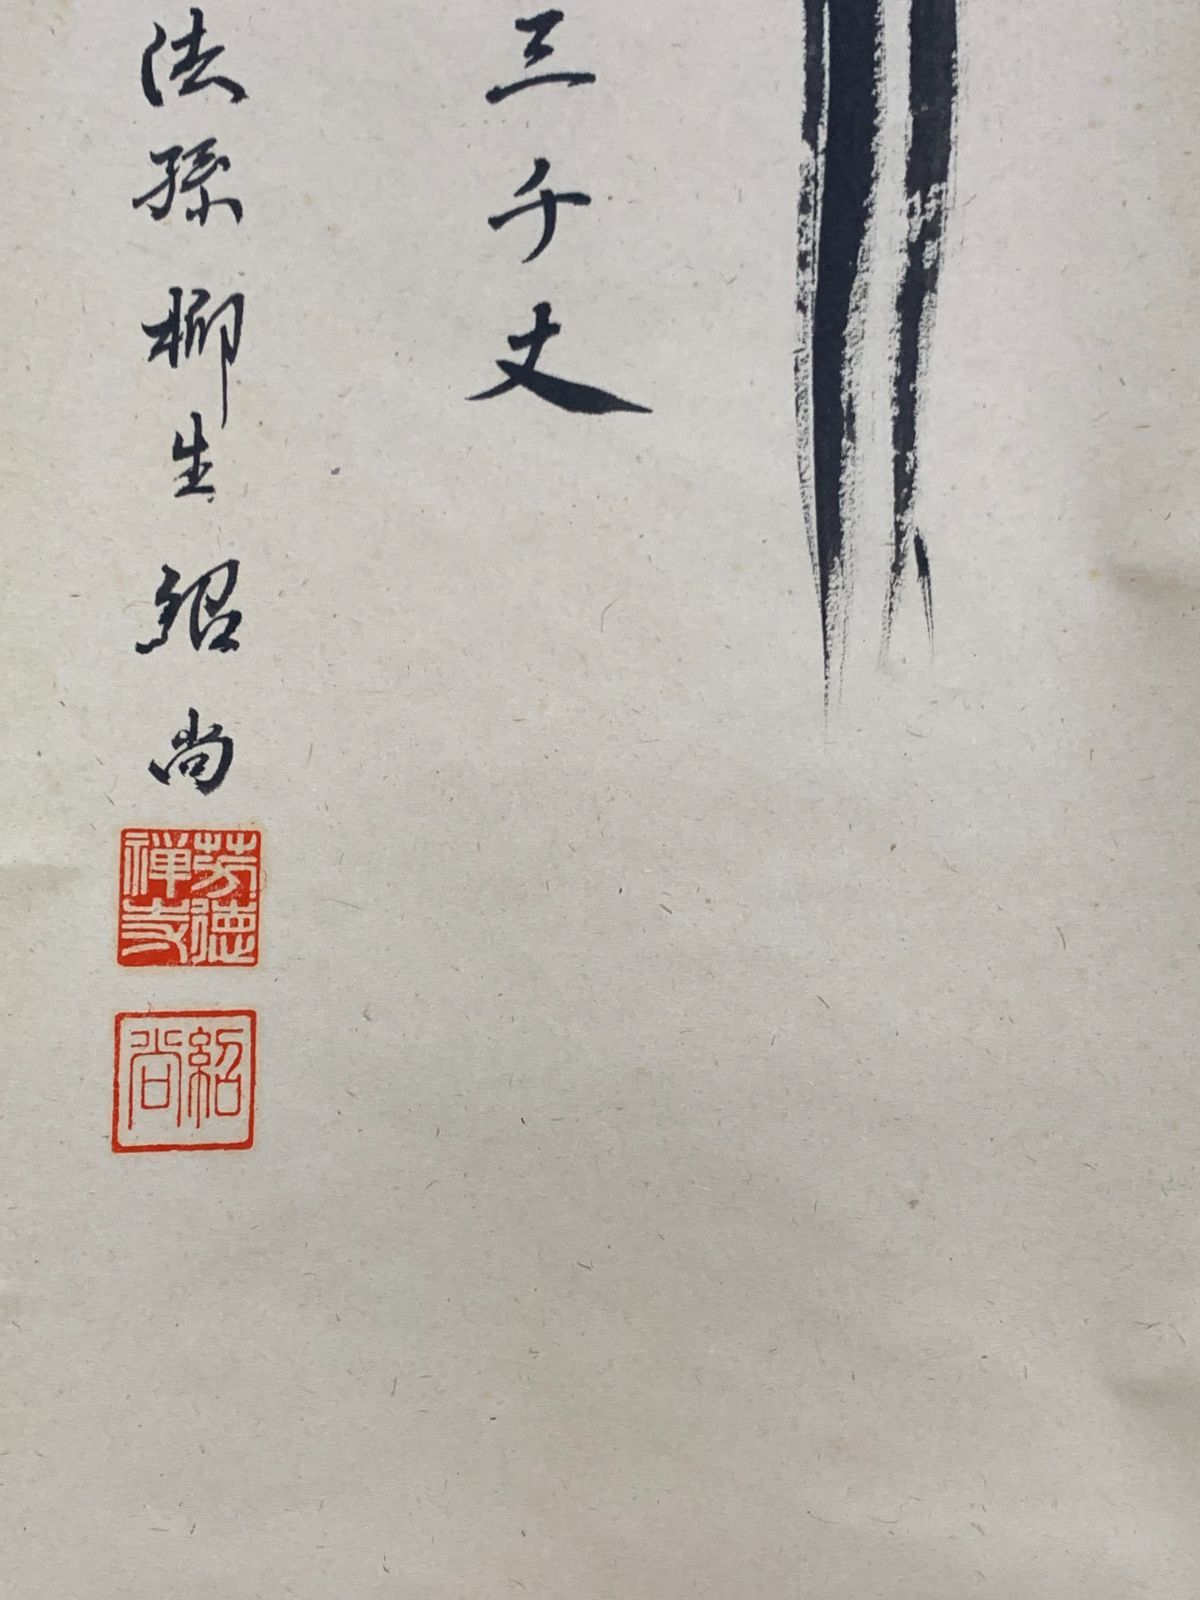 三千丈
法孫柳生紹尚
芳徳
禅寺
紹
尚